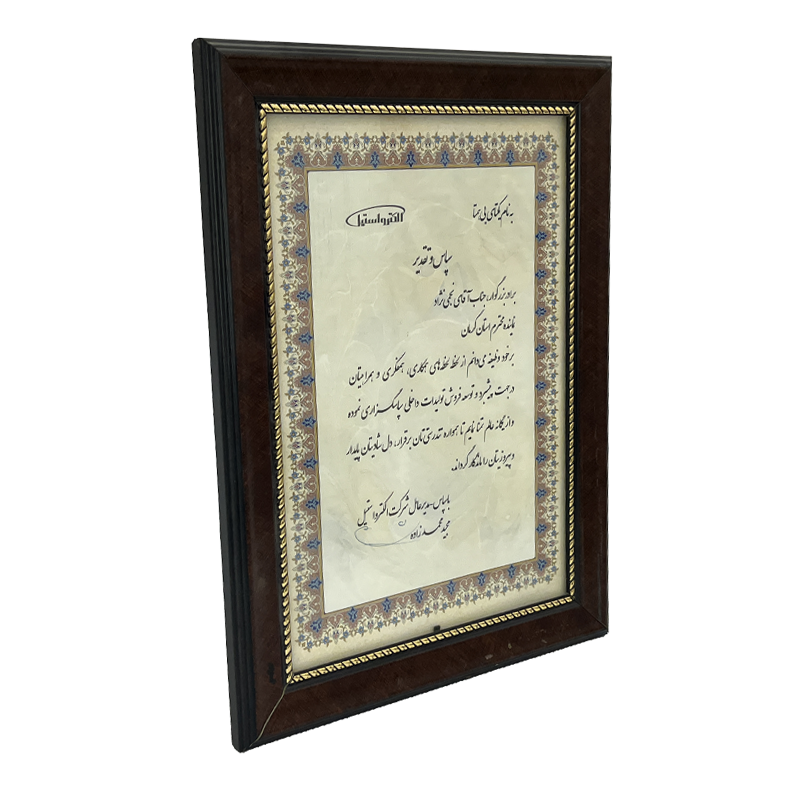 به نام یکتای بی همتا
الکترواستیل
سپاس و تقدیر
برادر بزرگوار، جناب آقای نجفی نژاد
نماینده محترم استان کرمان
بر خود وظیفه می دانم از لحظه لحظه های همکاری، همفکری و همراهیتان
در جهت پیشبرد و توسعه فروش تولیدات داخلی سپاسگزاری نموده
و از یگانه عالم تمنا نمایم تا همواره تندرستی تان برقرار، دل شادیتان پایدار
و پیروزیتان را ماندگار گرداند.
با سپاس-مدیرعامل شرکت الکترواستیل
مجید محمدزاده